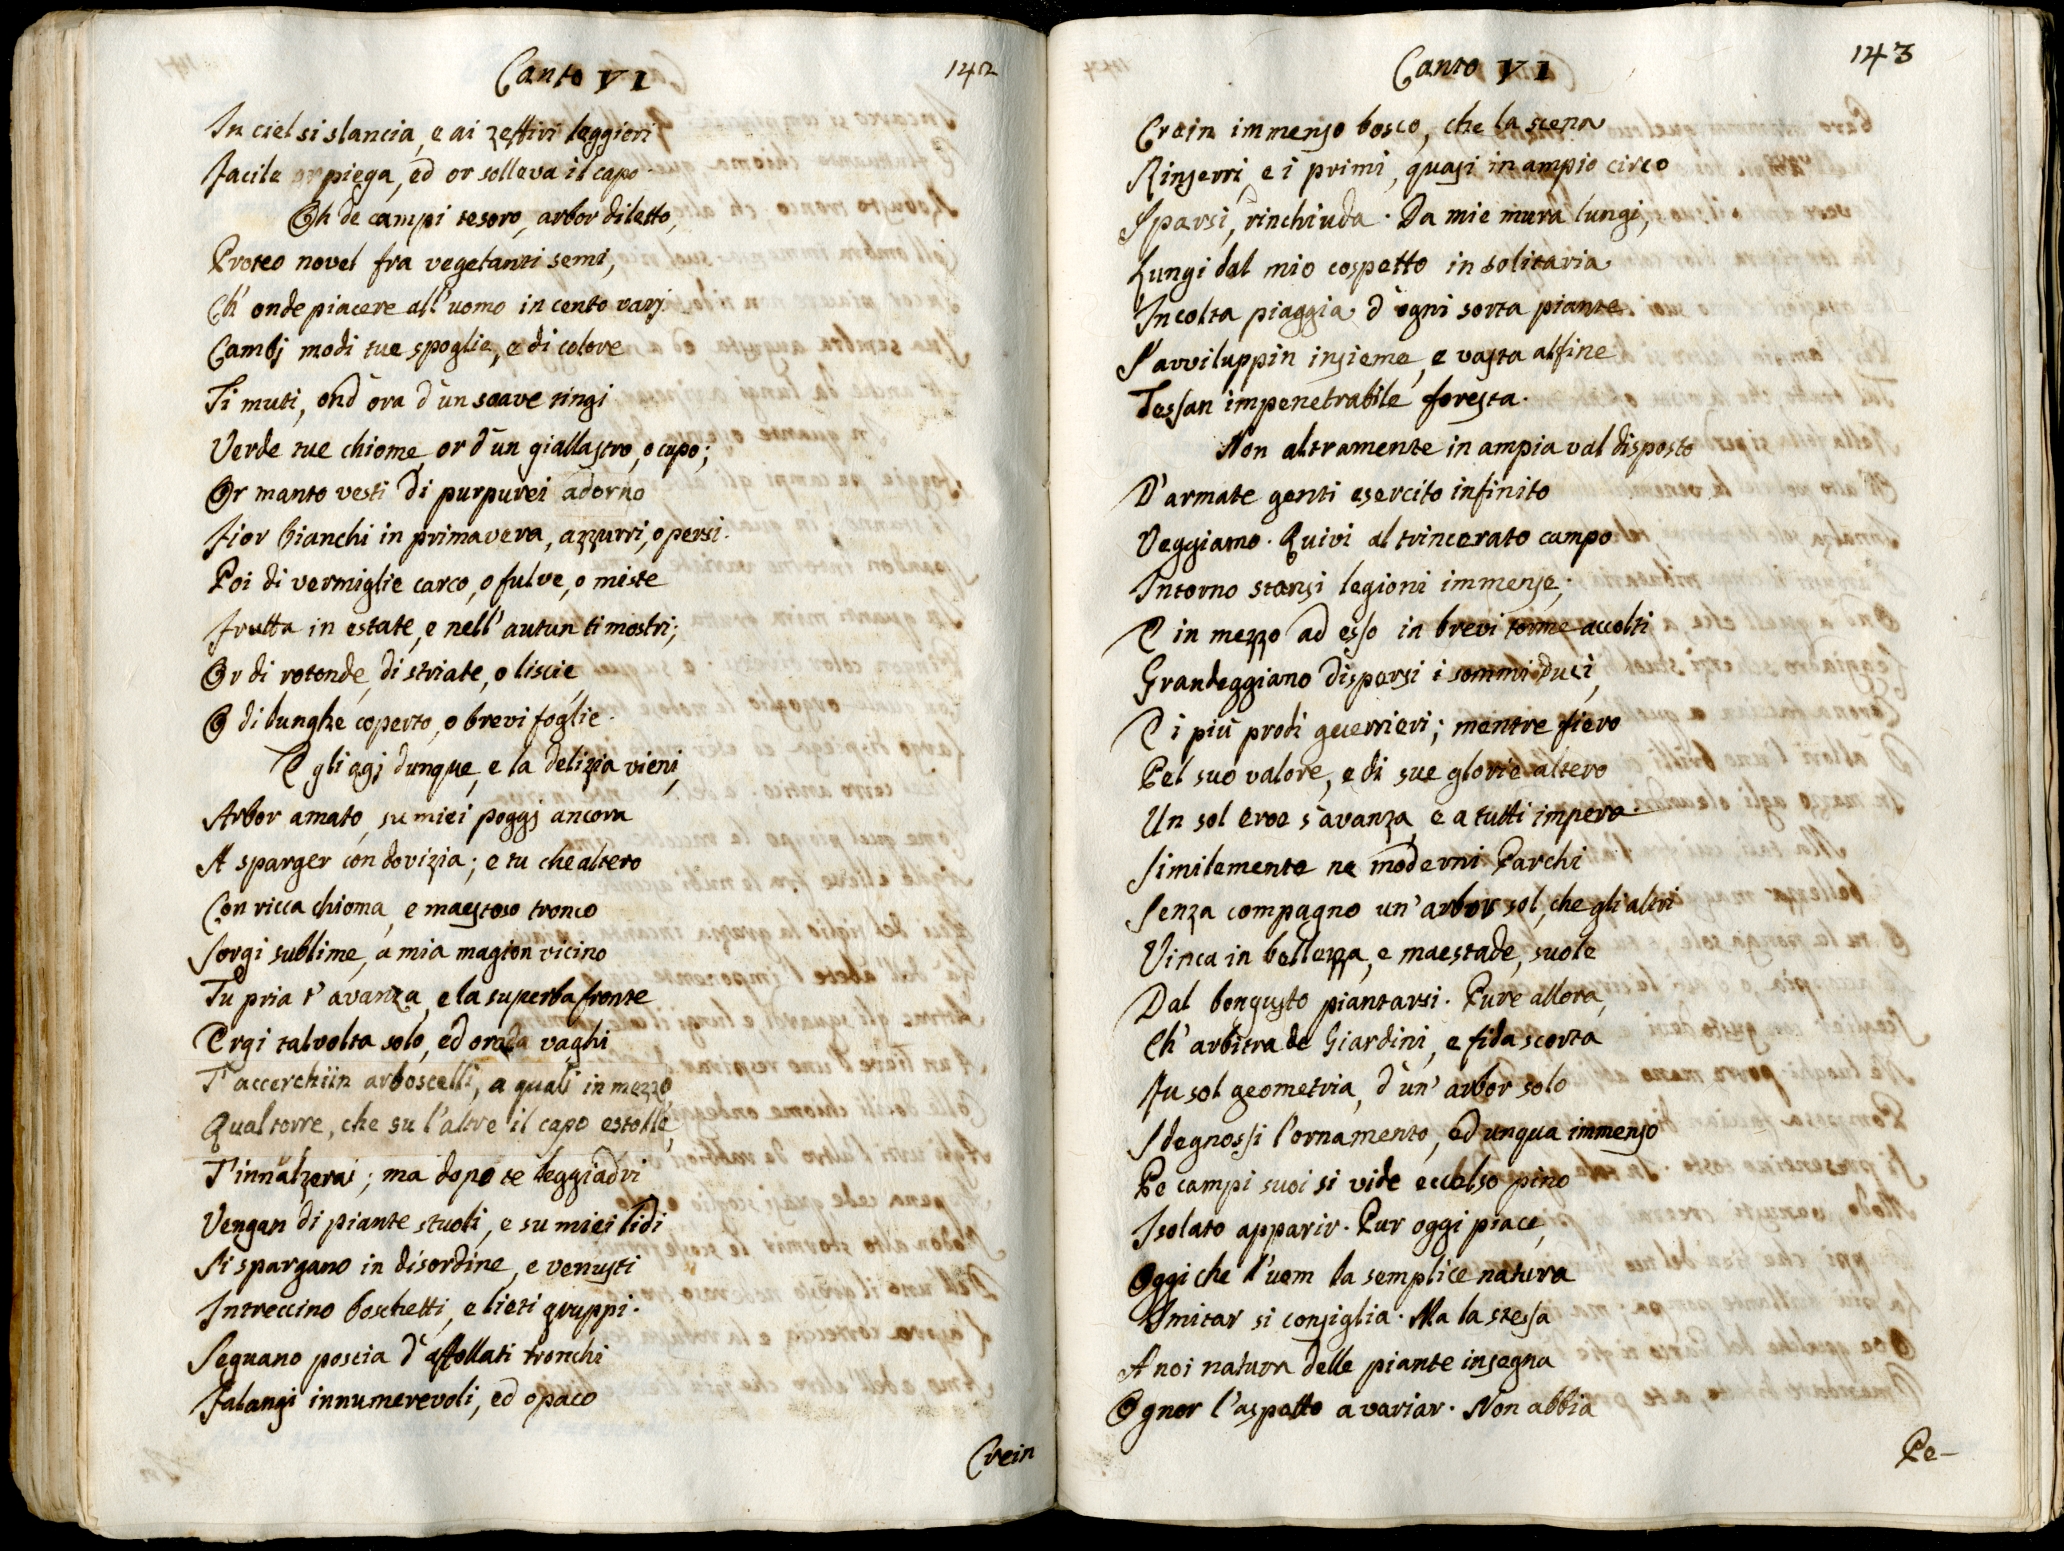 Canto VI
142
In ciel si slancia, e ai zeffiri leggieri
Facile or piega, ed or solleva il capo.
Oh de campi tesoro, arbor diletto,
Proteo novel fra vegetanti semi,
Ch' onde piacere all' uomo in cento varj
Cambj modi tue spoglie, e di colore
Ti muti, ond' ora d' un soave tingi
Verde tue chiome, or d' un giallastro, o cupo;
Or manto vesti di purpurei adorno
Fior bianchi in primavera, azzurri, o persi.
Poi di vermiglie carco, o fulve, o miste
Frutta in estate, e nell' autun ti mostri;
Or di rotonde, di striate, o liscie,
O di lunghe coperto, o brevi foglie.
E gli agj dunque, e la delizia vieni,
Arbor amato, su miei poggj ancora
A sparger con dovizia; e tu che altero
Con ricca chioma, e maestoso tronco
Sorgi sublime, a mia magion vicino
Tu pria t' avanza, e la superba fronte
Ergi talvolta solo, ed ora da vaghi
T' accerchiin arboscelli, a quali in mezzo,
Qual torre, che su l' altre il capo estolle,
T' innalzerai; ma dopo te leggiadri
Vengan di piante stuoli, e su miei lidi
Si spargano in disordine, e venusti
Intreccino boschetti, e lieti gruppi.
Seguano poscia d' affollati tronchi
Falangi innumerevoli, ed opaco
Crein
Canto VI
143
Crein immenso bosco, che la scena
Rinserri, e i primi, quasi in ampio circo
Sparsi, rinchiuda. Da mie mura lungi,
Lungi dal mio cospetto in solitaria
Incolta piaggia d' ogni sorta piante
S' avviluppin insieme, e vasta alfine
Tessan impenetrabile foresta.
Non altramente in ampia val disposto
D' armate genti esercito infinito
Veggiamo. Quivi al trincerato campo
Intorno stansi legioni immense,
E in mezzo ad esso in brevi torme accolti
Grandeggiano dispersi i sommi Duci,
E i più prodi guerrieri; mentre fiero
Pel suo valore, e di sue glorie altero
Un sol eroe s' avanza, e a tutti impera
Similemente ne moderni Parchi
Senza compagno un' arbor sol, che gli altri
Vinca in bellezza, e maestade, suole
Dal bongusto piantarsi. Pure allora,
Ch' arbitra de Giardini, e fida scorta
Fu sol geometria, d' un' arbor solo
Sdegnossi l' ornamento, ed unqua immenso
Pe campi suoi si vide eccelso pino
Isolato apparir. Pur oggi piace,
Oggi che l' uom la semplice natura
Imitar si consiglia. Ma la stessa
A noi natura delle piante insegna
Ognor l' aspetto a variar. Non abbia
Pe-